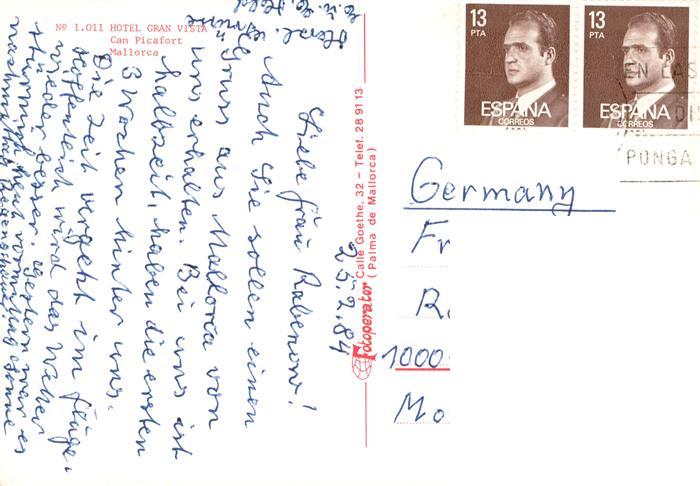 Nº 1.011 HOTEL GRAN VISTA
Can Picafort
Mallorca
25.2.84
Liebe Frau Rabenow!
Auch Sie sollen einen
Gruss aus Mallorca von
uns erhalten. Bei uns ist
Halbzeit, haben die ersten
3 Wochen hinter uns.
Die Zeit vergeht im Fluge.
Hoffentlich wird das Wetter
wieder besser. Gestern war es
stürmisch, heut vormittag Sonne
nachmittag
Herzl.
Fotoperator Calle Goethe, 32 - Telef. 28 91 13
(Palma de Mallorca)
13
PTA
ESPAÑA
CORREOS
F.N.M.T.
13
PTA
ESPAÑA
CORREOS
EN LAS
DIS
PONGA
Germany
Fr
R
1000
Mo